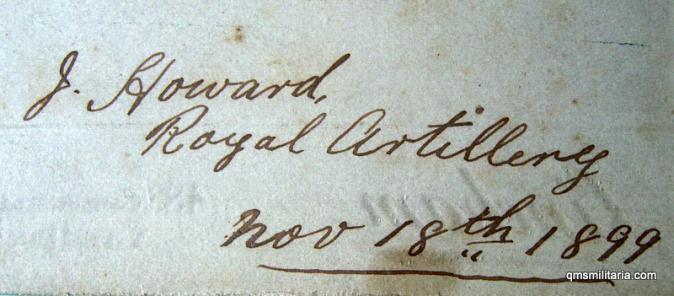 J. Howard,
Royal Artillery
Nov 18th 1899
qmsmilitaria.com